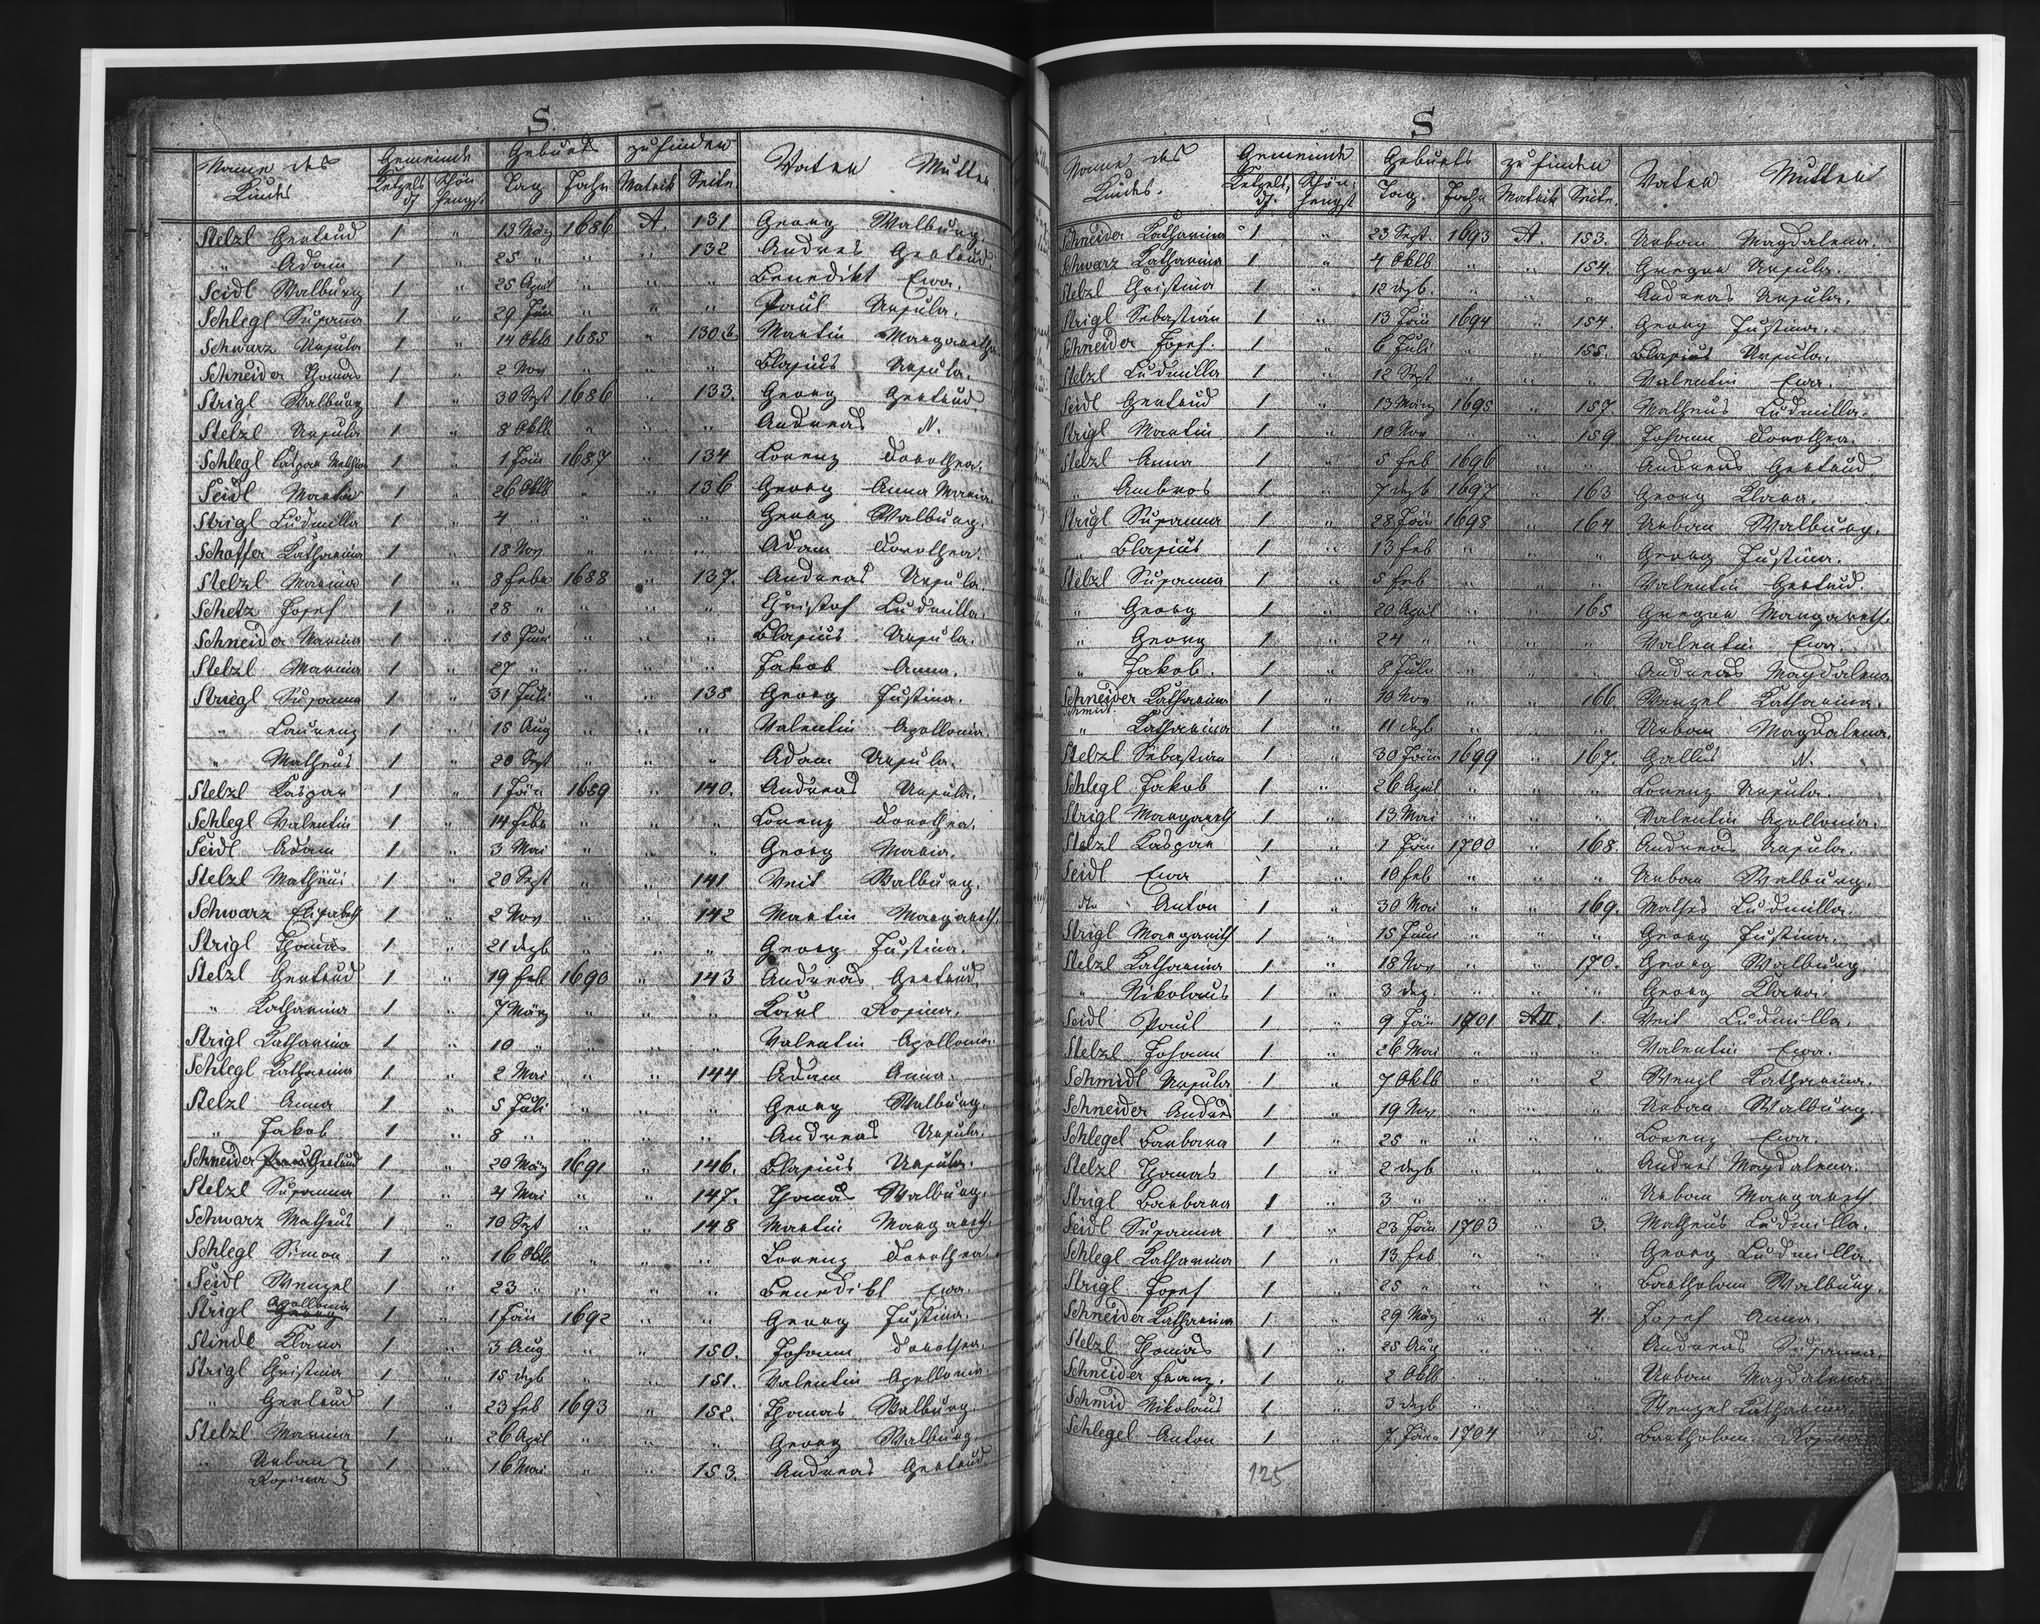 S.
Name des Kindes Gemeinde Geburts zu finden Vater Mutter
Ketzelsdf Schönhengst Tag Jahr Matrik Seite
Stelzl Gertrud 1 " 13 März 1686 A. 131 Georg Walburg.
" Adam 1 " 25 " " " 132 Andres Gertrud.
Seidl Walburg 1 " 25 April " " " Benedikt Ewa.
Schlegl Susana 1 " 29 Jun " " " Paul Ursula.
Schwarz Ursula 1 " 14 Oktb 1685 " 130 b. Martin Margaretha
Schneider Thomas 1 " 2 Nov " " " Blasius Ursula.
Strigl Walburg 1 " 30 Sept 1686 " 133. Georg Gertrud.
Stelzl Ursula 1 " 8 Oktb " " " Andreas N.
Schlegl Caspar Melchior 1 " 1 Jän 1687 " 134 Lorenz Dorothea.
Seidl Martin 1 " 26 Oktb " " 136 Georg Anna Maria.
Strigl Ludmilla 1 " 4 " " " " Georg Walburg.
Schoffer Katharina 1 " 18 Nov " " " Adam Dorothea.
Stelzl Marina 1 " 8 Febr 1688 " 137. Andreas Ursula.
Schetz Josef 1 " 28 " " " " Christof Ludmilla.
Schneider Marina 1 " 18 Juni " " " Blasius Ursula.
Stelzl Marina 1 " 27 " " " " Jakob Anna.
Striegl Susanna 1 " 31 Juli " " 138 Georg Justina.
" Laurenz 1 " 15 Aug " " " Valentin Apollonia
" Matheus 1 " 20 Sept " " " Adam Ursula.
Stelzl Caspar 1 " 1 Jän 1689 " 140. Andreas Ursula.
Schlegl Valentin 1 " 14 Febr " " " Lorenz Dorothea.
Seidl Adam 1 " 3 Mai " " " Georg Maria.
Stelzl Mathäus 1 " 20 Sept " " 141 Veit Walburg.
Schwarz Elisabeth 1 " 2 Nov " " 142 Martin Margareth.
Strigl Thomas 1 " 21 Dezb " " " Georg Justina.
Stelzl Gertrud 1 " 19 Feb 1690 " 143 Andreas Gertrud.
" Katharina 1 " 7 März " " " Karl Rosina.
Strigl Katharina 1 " 10 " " " " Valentin Apollonia
Schlegl Katharina 1 " 2 Mai " " 144 Adam Anna.
Stelzl Anna 1 " 5 Juli " " " Georg Walburg.
" Jakob 1 " 8 " " " " Andreas Ursula.
Schneider Gertrud 1 " 20 März 1691 " 146. Blasius Ursula.
Stelzl Susanna 1 " 4 Mai " " 147. Thomas Walburg.
Schwarz Matheus 1 " 10 Sept " " 148 Martin Margareth.
Schlegl Simon 1 " 16 Oktb " " " Lorenz Dorothea.
Seidl Wenzel 1 " 23 " " " " Benedikt Ewa.
Strigl Apollonia Georg 1 " 1 Jän 1692 " " Georg Justina.
Stindl Klara 1 " 3 Aug " " 150. Johann Dorothea.
Strigl Christina 1 " 15 Dezb " " 151. Valentin Apollonia
" Gertrud 1 " 23 Feb 1693 " 152. Thomas Walburg
Stelzl Marina 1 " 26 April " " " Georg Walburg
" Urban 1 " 16 Mai " " 153. Andreas Gertrud
Rosina }
S
Name des Kindes. Gemeinde Geburts zu finden Vater Mutter
Ketzelsdf. Schönhengst Tag. Jahr Matrik Seite.
Schneider Katharina 1 " 23 Sept. 1693 A. 153. Urban Magdalena.
Schwarz Katharina 1 " 4 Oktb " " 154. Gregor Ursula.
Stelzl Christina 1 " 12 Dezb. " " " Andreas Ursula.
Strigl Sebastian 1 " 13 Jän 1694 " 154. Georg Justina.
Schneider Josef. 1 " 6 Juli " " 155. Blasius Ursula.
Stelzl Ludmilla 1 " 12 Sept " " " Valentin Ewa.
Seidl Gertrud 1 " 13 März 1695 " 157. Matheus Ludmilla.
Strigl Martin 1 " 10 Nov " " 159 Johann Dorothea.
Stelzl Anna 1 " 5 Feb 1696 " " Andreas Gertrud
" Ambros 1 " 7 Dezb 1697 " 163 Georg Klara.
Strigl Susanna 1 " 28 Jän 1698 " 164 Urban Walburg.
" Blasius 1 " 13 Feb " " " Georg Justina.
Stelzl Susanna 1 " 5 Feb " " " Valentin Gertrud.
" Georg 1 " 20 April " " 165 Gregor Margareth.
" Georg 1 " 24 " " " " Valentin Ewa.
" Jakob. 1 " 8 Juli " " " Andreas Magdalena
Schneider Katharina 1 " 10 Nov " " 166 Wenzel Katharina.
Schmidt
" Katharina 1 " 11 Dezb " " " Urban Magdalena.
Stelzl Sebastian 1 " 30 Jän 1699 " 167. Gallus N.
Schlegl Jakob 1 " 26 April " " " Lorenz Ursula.
Strigl Margareth 1 " 13 Mai " " " Valentin Apollonia.
Stelzl Caspar 1 " 1 Jän 1700 " 168. Andreas Ursula.
Seidl Ewa 1 " 10 Feb " " " Urban Walburg.
dto Anton 1 " 30 Mai " " 169. Mathes Ludmilla.
Strigl Margareth 1 " 15 Juni " " " Georg Justina.
Stelzl Katharina 1 " 18 Nov " " 170. Georg Walburg.
" Nikolaus 1 " 3 Dez. " " " Georg Klara.
Seidl Paul 1 " 9 Jän 1701 A II. 1. Veit Ludmilla.
Stelzl Johann 1 " 26 Mai " " " Valentin Ewa.
Schmidl Ursula 1 " 7 Oktb " " 2 Wenzl Katharina.
Schneider Andres 1 " 19 Nov " " " Urban Walburg
Schlegel Barbara 1 " 25 " " " " Lorenz Ewa.
Stelzl Thomas 1 " 2 Dezb " " " Andres Magdalena.
Strigl Barbara 1 " 3 " " " " Urban Margareth
Seidl Susanna 1 " 23 Jän 1703 " 3. Matheus Ludmilla.
Schlegl Katharina 1 " 13 Feb " " " Georg Ludmilla.
Strigl Josef 1 " 25 " " " " Bartholom Walburg.
Schneider Katharina 1 " 29 März " " 4. Josef Anna.
Stelzl Thomas 1 " 25 Aug " " " Andreas Susanna.
Schneider Franz. 1 " 2 Oktb " " " Urban Magdalena
Schmid Nikolaus 1 " 3 Dezb " " " Wenzel Katharina
Schlegel Anton 1 " 7 Jän 1704 " 5. Bartholom Rosina
125